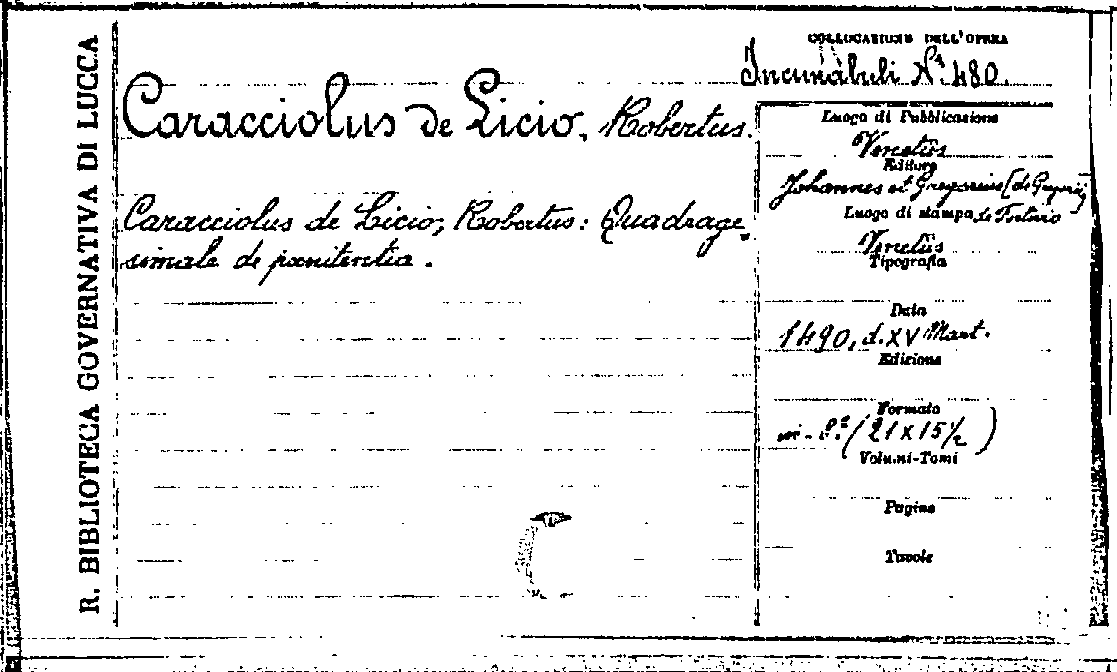 R. BIBLIOTECA GOVERNATIVA DI LUCCA
COLLOCAZIONE DELL'OPERA
Incunabuli N.º 480.
Caracciolus de Licio, Robertus.
Caracciolus de Licio, Robertus: Quadrage-
simale de pœnitentia.
Luogo di Pubblicazione
Venetiis
Editore
Johannes et Gregorius [de Gregoriis]
Luogo di stampa de Forlivio
Venetiis
Tipografia
Data
1490, d. XV Mart.
Edizione
Formato
in-8.º (21 x 15½)
Volumi-Tomi
Pagine
Tavole